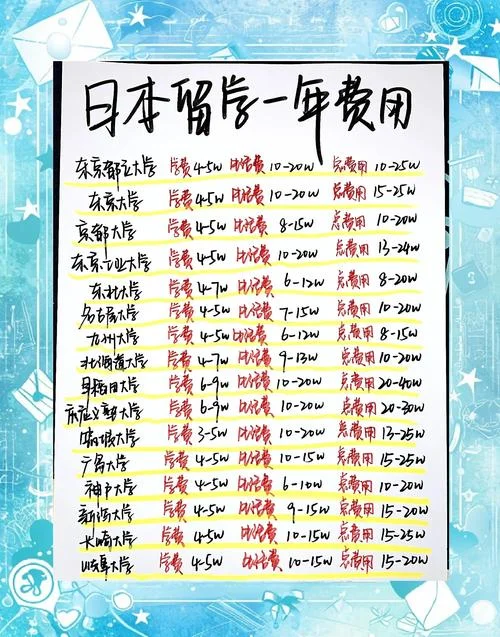 日本留学一年费用
东京都立大学 学费 4-5W 生活费 10-20W 总费用 10-25W
东京大学 学费 4-5W 生活费 10-20W 总费用 15-25W
京都大学 学费 4-5W 生活费 8-15W 总费用 10-20W
东京工业大学 学费 4-5W 生活费 10-20W 总费用 13-24W
东北大学 学费 4-7W 生活费 6-12W 总费用 8-20W
名古屋大学 学费 4-5W 生活费 7-15W 总费用 10-20W
九州大学 学费 4-5W 生活费 6-12W 总费用 8-15W
北海道大学 学费 4-7W 生活费 9-13W 总费用 10-20W
早稻田大学 学费 6-9W 生活费 10-20W 总费用 20-40W
庆应义塾大学 学费 6-9W 生活费 10-20W 总费用 20-30W
大学 学费 3-5W 生活费 10-20W 总费用 13-25W
广岛大学 学费 4-5W 生活费 10-15W 总费用 15-25W
神户大学 学费 4-5W 生活费 6-10W 总费用 10-20W
新潟大学 学费 4-5W 生活费 9-15W 总费用 15-20W
长崎大学 学费 4-5W 生活费 10-15W 总费用 15-25W
大学 学费 4-5W 生活费 10-15W 总费用 15-20W